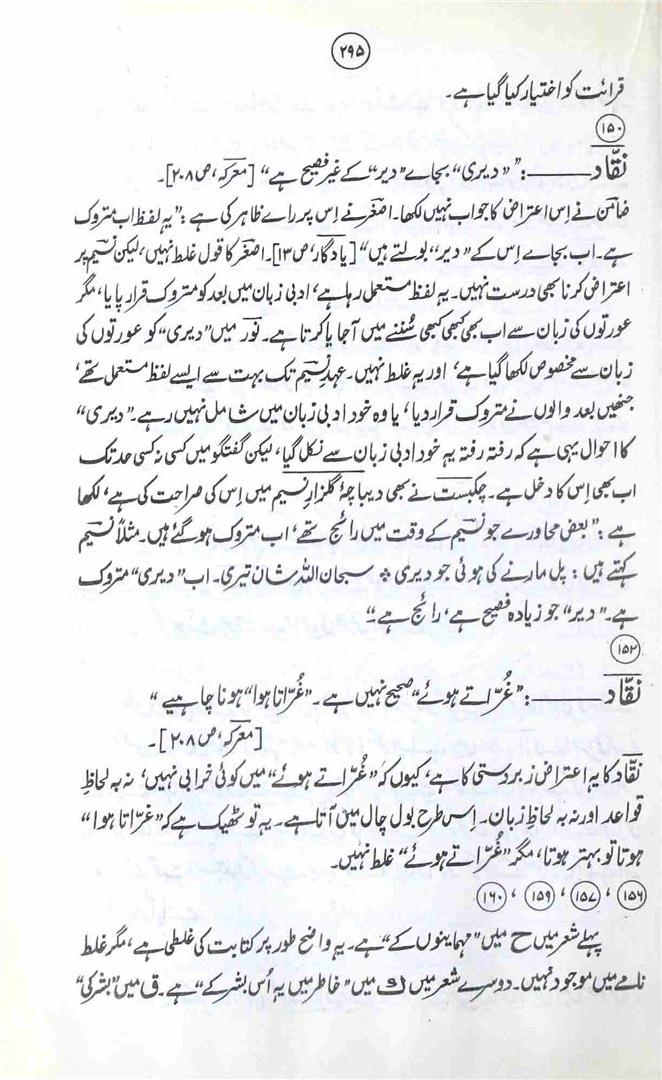 ۲۹۵
قرائت کو اختیار کیا گیا ہے۔
۱۵۰
نقّاد ـــــــــ : ” ”دیری“ بجاے ”دیر“ کے غیر فصیح ہے “ [معرکہ، ص ۲۰۸]۔
ضامن نے اِس اعتراض کا جواب نہیں لکھا۔ اصغر نے اِس پر راے ظاہر کی ہے : ”یہ لفظ اب متروک
ہے۔ اب بجاے اِس کے ”دیر“ بولتے ہیں“ [یادگار، ص ۱۳]۔ اصغر کا قول غلط نہیں، لیکن نسیم پر
اعتراض کرنا بھی درست نہیں۔ یہ لفظ مستعمل رہا ہے، ادبی زبان میں بعد کو متروک قرار پایا، مگر
عورتوں کی زبان سے اب بھی کبھی کبھی سُننے میں آجایا کرتا ہے۔ نور میں ”دیری“ کو عورتوں کی
زبان سے مخصوص لکھا گیا ہے، اور یہ غلط نہیں۔ عہدِ نسیم تک بہت سے ایسے لفظ مستعمل تھے،
جنھیں بعد والوں نے متروک قرار دیا، یا وہ خود ادبی زبان میں شامل نہیں رہے۔ ”دیری“
کا احوال یہی ہے کہ رفتہ رفتہ یہ خود ادبی زبان سے نکل گیا، لیکن گفتگو میں کسی نہ کسی حد تک
اب بھی اِس کا دخل ہے۔ چکبست نے بھی دیباچۂ گلزارِ نسیم میں اِس کی صراحت کی ہے، لکھا
ہے : ”بعض محاورے جو نسیم کے وقت میں رائج تھے، اب متروک ہو گئے ہیں۔ مثلاً نسیم
کہتے ہیں : پل مارنے کی ہوئی جو دیری ٭ سبحان اللہ شان تیری۔ اب ”دیری“ متروک
ہے۔ ”دیر“ جو زیادہ فصیح ہے، رائج ہے“۔
۱۵۲
نقّاد ـــــــــ : ”غُرّاتے ہوئے“ صحیح نہیں ہے۔ ”غُرّاتا ہوا“ ہونا چاہیے “
[معرکہ، ص ۲۰۸]۔
نقّاد کا یہ اعتراض زبردستی کا ہے، کیوں کہ ”غُرّاتے ہوئے“ میں کوئی خرابی نہیں، نہ بہ لحاظِ
قواعد اور نہ بہ لحاظِ زبان۔ اِس طرح بول چال میں آتا ہے۔ یہ تو ٹھیک ہے کہ ”غرّاتا ہوا“
ہوتا تو بہتر ہوتا، مگر ”غُرّاتے ہوئے“ غلط نہیں۔
۱۵۶ ، ۱۵۷ ، ۱۵۹ ، ۱۶۰
پہلے شعر میں ح میں ”مہماینوں کے“ ہے۔ یہ واضح طور پر کتابت کی غلطی ہے، مگر غلط
نامے میں موجود نہیں۔ دوسرے شعر میں ک میں ”خاطر میں یہ اُس بشر کے“ ہے۔ ق میں ”بشر کی“